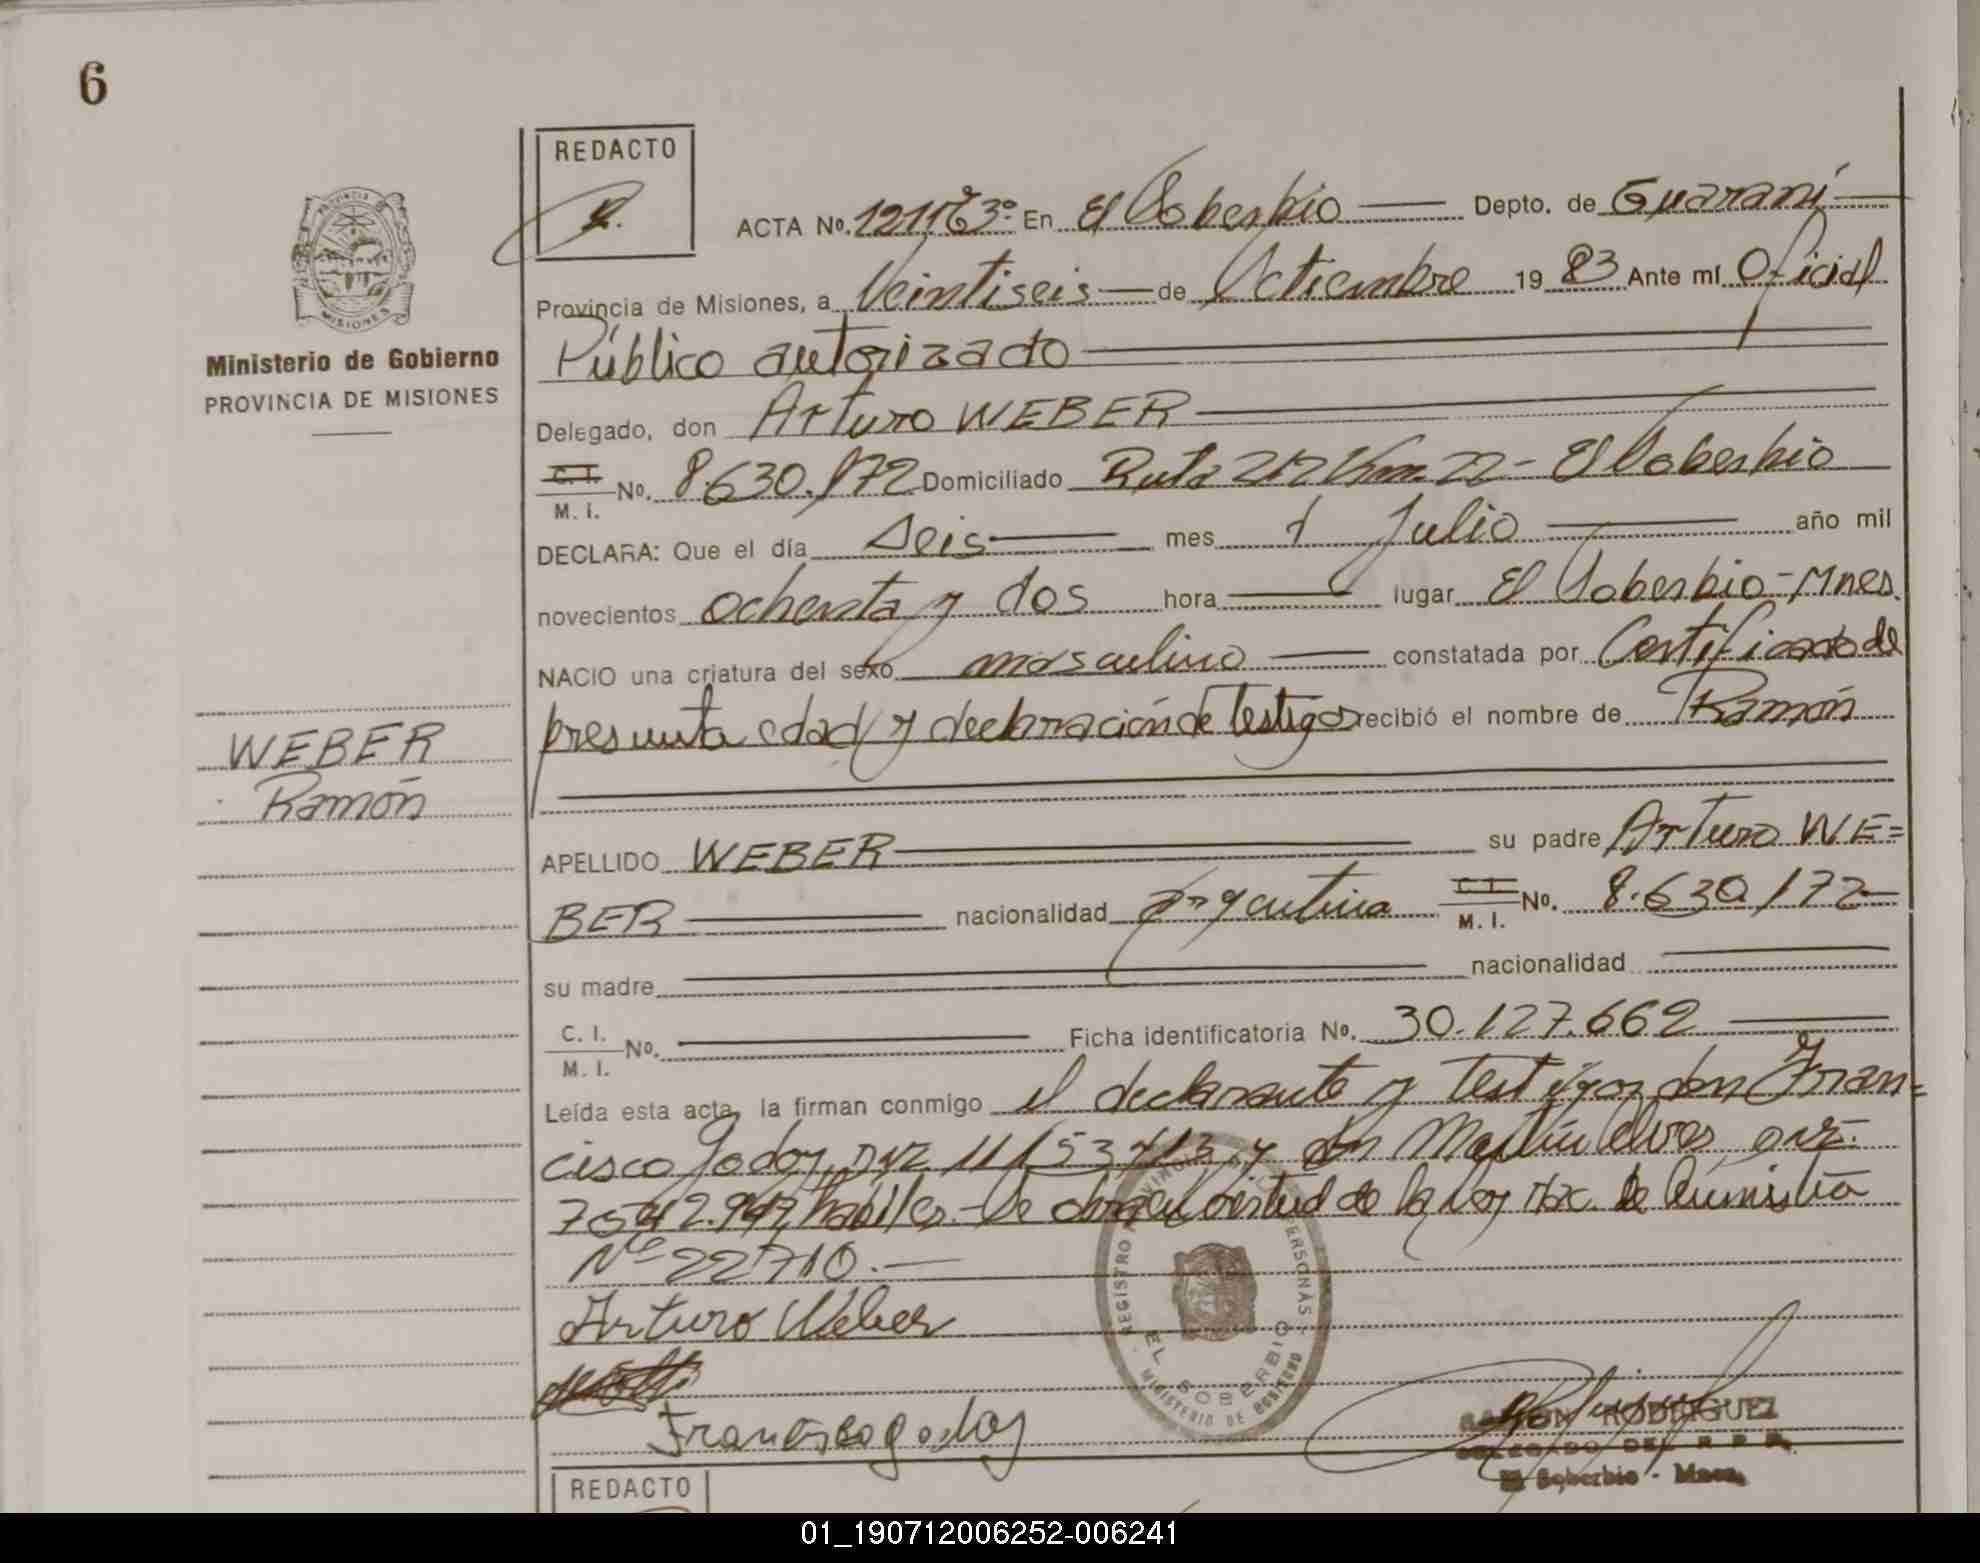 6
REDACTO
ACTA No. 1211 Tº 3º En El Soberbio Depto. de Guaraní
Provincia de Misiones, a Veintiseis de Octiembre 19 83 Ante mí Oficial
Público autorizado
Ministerio de Gobierno
PROVINCIA DE MISIONES
Delegado, don Arturo WEBER
C. I. M. I. No. 8.630.172 Domiciliado Ruta 212 Km. 22 - El Soberbio
DECLARA: Que el día Seis mes Julio año mil
novecientos ochenta y dos hora lugar El Soberbio - Mnes.
NACIO una criatura del sexo masculino constatada por Certificado de
presunta edad y declaración de Testigos recibió el nombre de Ramón
WEBER
Ramón
APELLIDO WEBER su padre Arturo WE=
BER nacionalidad argentina C. I. M. I. No. 8.630.172
su madre nacionalidad
C. I. M. I. No. Ficha identificatoria No. 30.127.662
Leída esta acta, la firman conmigo el declarante y Testigos don Fran=
cisco Godoy, y don Martín
hábiles.- Se obra en virtud de la Ley Nac. de Amnistía
Nº 22710.-
Arturo Weber
Francisco godoy
REGISTRO PROVINCIAL DE LAS PERSONAS
EL SOBERBIO
MINISTERIO DE GOBIERNO
RAMON RODRIGUEZ
DELEGADO DEL R P P
El Soberbio - Mnes.
REDACTO
PROVINCIA DE
MISIONES
01_190712006252-006241